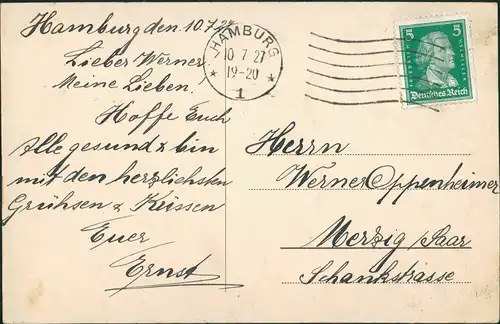 Hamburg den 10.7.27
Lieber Werner!
Meine Lieben.
Hoffe Euch
Alle gesund & bin
mit den herzlichsten
Grühsen & Küssen
Euer
Ernst
HAMBURG
10 7 27
19-20
* 1 *
5 5
Deutsches Reich
Herrn
Werner Oppenheimer
Merzig /Saar
Schankstrasse